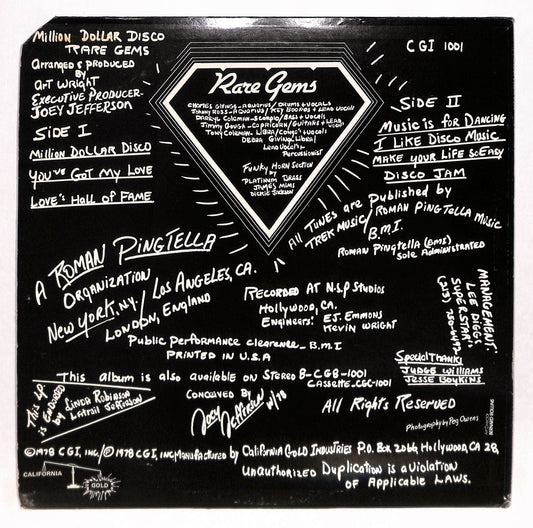 Million Dollar Disco
Rare Gems
Arranged & Produced
By
Art Wright
Executive Producer-
Joey Jefferson
Side I
Million Dollar Disco
You've Got My Love
Love's Hall of Fame
CGI 1001
Rare Gems
Charles Givings-Aquarius/Drums & Vocals
Johnny Ross-Aquarius/Key Boards & Lead Vocals
Darryl Coleman-Scorpio/Bass & Vocals
Jimmy Gough-Capricorn/Guitars & Lead Vocals
Tony Coleman Libra/Congas & Vocals
Debra Givings/Libra/
Lead Vocals-
Percussionist
Funky Horn Section
by
Platinum Brass
James Mims
Dickie Jackson
Side II
Music is for Dancing
I Like Disco Music
Make Your Life So Easy
Disco Jam
All Tunes are Published by
Trek Music/Roman Pingtella Music
B.M.I.
Roman Pingtella (BMI)
Sole Administrated
A Roman Pingtella
Organization
New York, NY./Los Angeles, CA.
London, England
Recorded at N.S.P Studios
Hollywood, CA.
Engineers: E.J. Emmons
Kevin Wright
Management:
Lee Diggs
Superstar
Public performance clearence- B.M.I
Printed in U.S.A
Special Thanks
Judge Williams
Jesse Boykins
This album is also available on Stereo 8-CG8-1001
Cassette, CGC-1001
This L.P.
is Conjured
by Linda Robinson
Latroil Jefferson
Conceived By
Joey Jefferson 4/78
All Rights Reserved
Photography by Peg Owens
©1978 CGI, Inc/℗1978 CGI, Inc Manufactured by California Gold Industries P.O. Box 2066, Hollywood, CA 28,
Unauthorized Duplication is a Violation
of Applicable Laws.
CALIFORNIA
GOLD